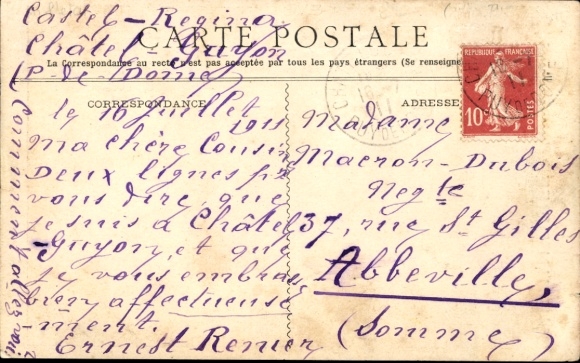 Castel-Regina
Châtel-Guyon
(P-de-Dome)
CARTE POSTALE
La Correspondance au recto n'est pas acceptée par tous les pays étrangers (Se renseigne
CORRESPONDANCE
le 16 Juillet
1911
Ma chère Cousine
Deux lignes pr
vous dire que
je suis à Châtel
-Guyon, et que
je vous embras
bien affectueuse
-ment.
Ernest Renier
Comment allez-vous
ADRESSE
Madame
Macron-Dubois
Negte
37, rue St Gilles
Abbeville,
(Somme)
REPUBLIQUE FRANÇAISE
10c
POSTES